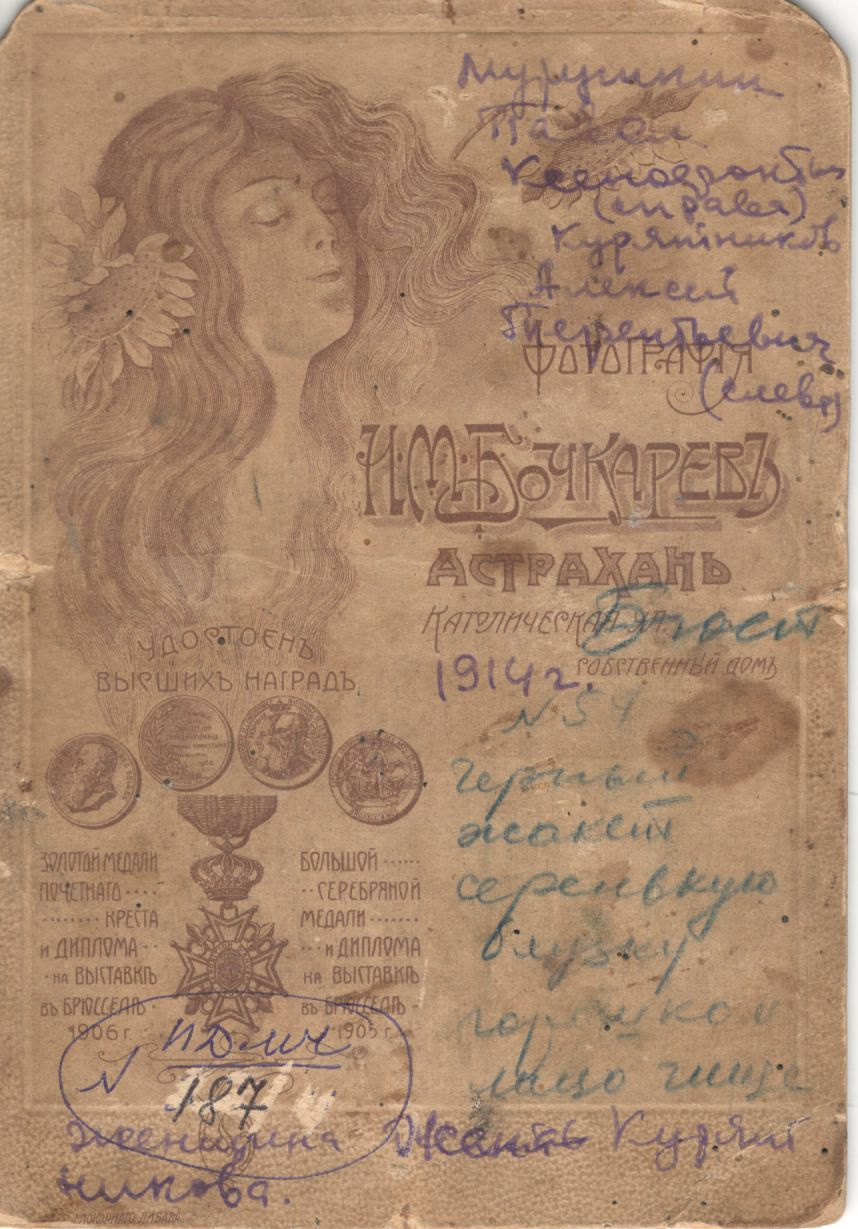 Мурушкин
Павел
Ксенофонтьи
(справа)
Курятников
Алексей
Терентьевич
(слева)
ФОТОГРАФІЯ
И.М. БОЧКАРЕВЪ
АСТРАХАНЬ
КАТОЛИЧЕСКАЯ УЛ.
СОБСТВЕННЫЙ ДОМЪ
Бюст
1914 г.
N 54
черный
жакет
сереньвкую
блузку
горошком
лицо чище
УДОСТОЕНЪ
ВЫСШИХЪ НАГРАДЪ
ЗОЛОТОЙ МЕДАЛИ
ПОЧЕТНАГО ····
······· КРЕСТА
И ДИПЛОМА ··
· НА ВЫСТАВКѢ
ВЪ БРЮССЕЛѢ ·
1906 г.
БОЛЬШОЙ ······
·· СЕРЕБРЯНОЙ
МЕДАЛИ ·······
··· И ДИПЛОМА
НА ВЫСТАВКѢ
ВЪ БРЮССЕЛѢ ·
1905 г.
N
187
женщина Курят
никова.